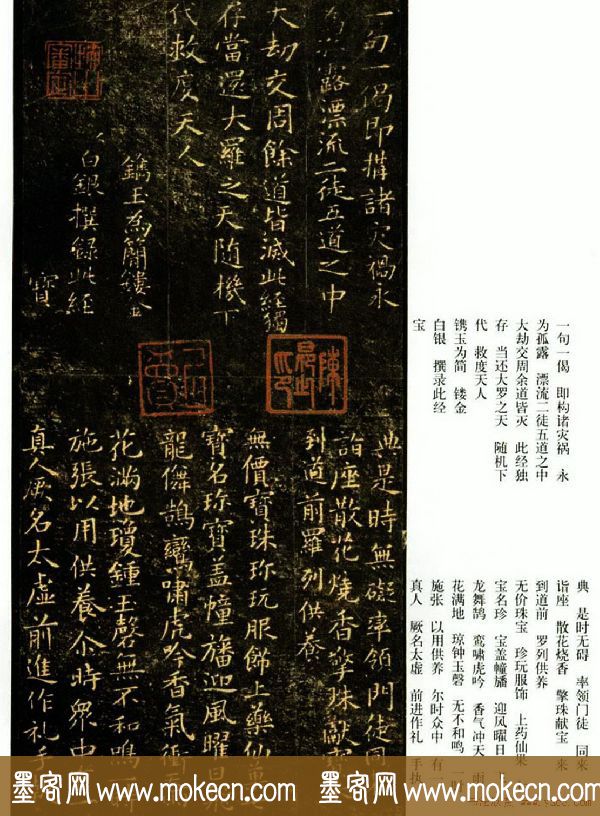 一句一偈即构諸灾禍永
為孤露漂流二徒五道之中
大劫交周餘道皆滅此經獨
存當還大羅之天随機下
代救度天人
鐫玉為簡鏤金
白銀撰録此經
寶
典是時無礙率領門徒同
詣座散花燒香擎珠獻寶
到道前羅列供
無價寶珠珎玩服飾上藥仙
寶名珎寶盖幢旛迎風曜日
龍儛鵠鸞嘯虎吟香氣衝
花滿地瓊鍾玉磬無不和鳴
施張以用供養尒時衆中
真人厥名太虚前進作礼手
陳
一句一偈 即构诸灾祸 永
为孤露 漂流二徒五道之中
大劫交周余道皆灭 此经独
存 当还大罗之天 随机下
代 救度天人
镌玉为简 镂金
白银 撰录此经
宝
典 是时无碍 率领门徒 同来
诣座 散花烧香 擎珠献宝 来
到道前 罗列供养
无价珠宝 珍玩服饰 上药仙果
宝名珍 宝盖幢旙 迎风曜日
龙舞鹄 鸾啸虎吟 香气冲天 雨
花满地 琼钟玉磬 无不和鸣 一
施张 以用供养 尔时众中 有一
真人 厥名太虚 前进作礼 手执
墨客网 www.mokecn.com 墨客网 www.mokecn.com